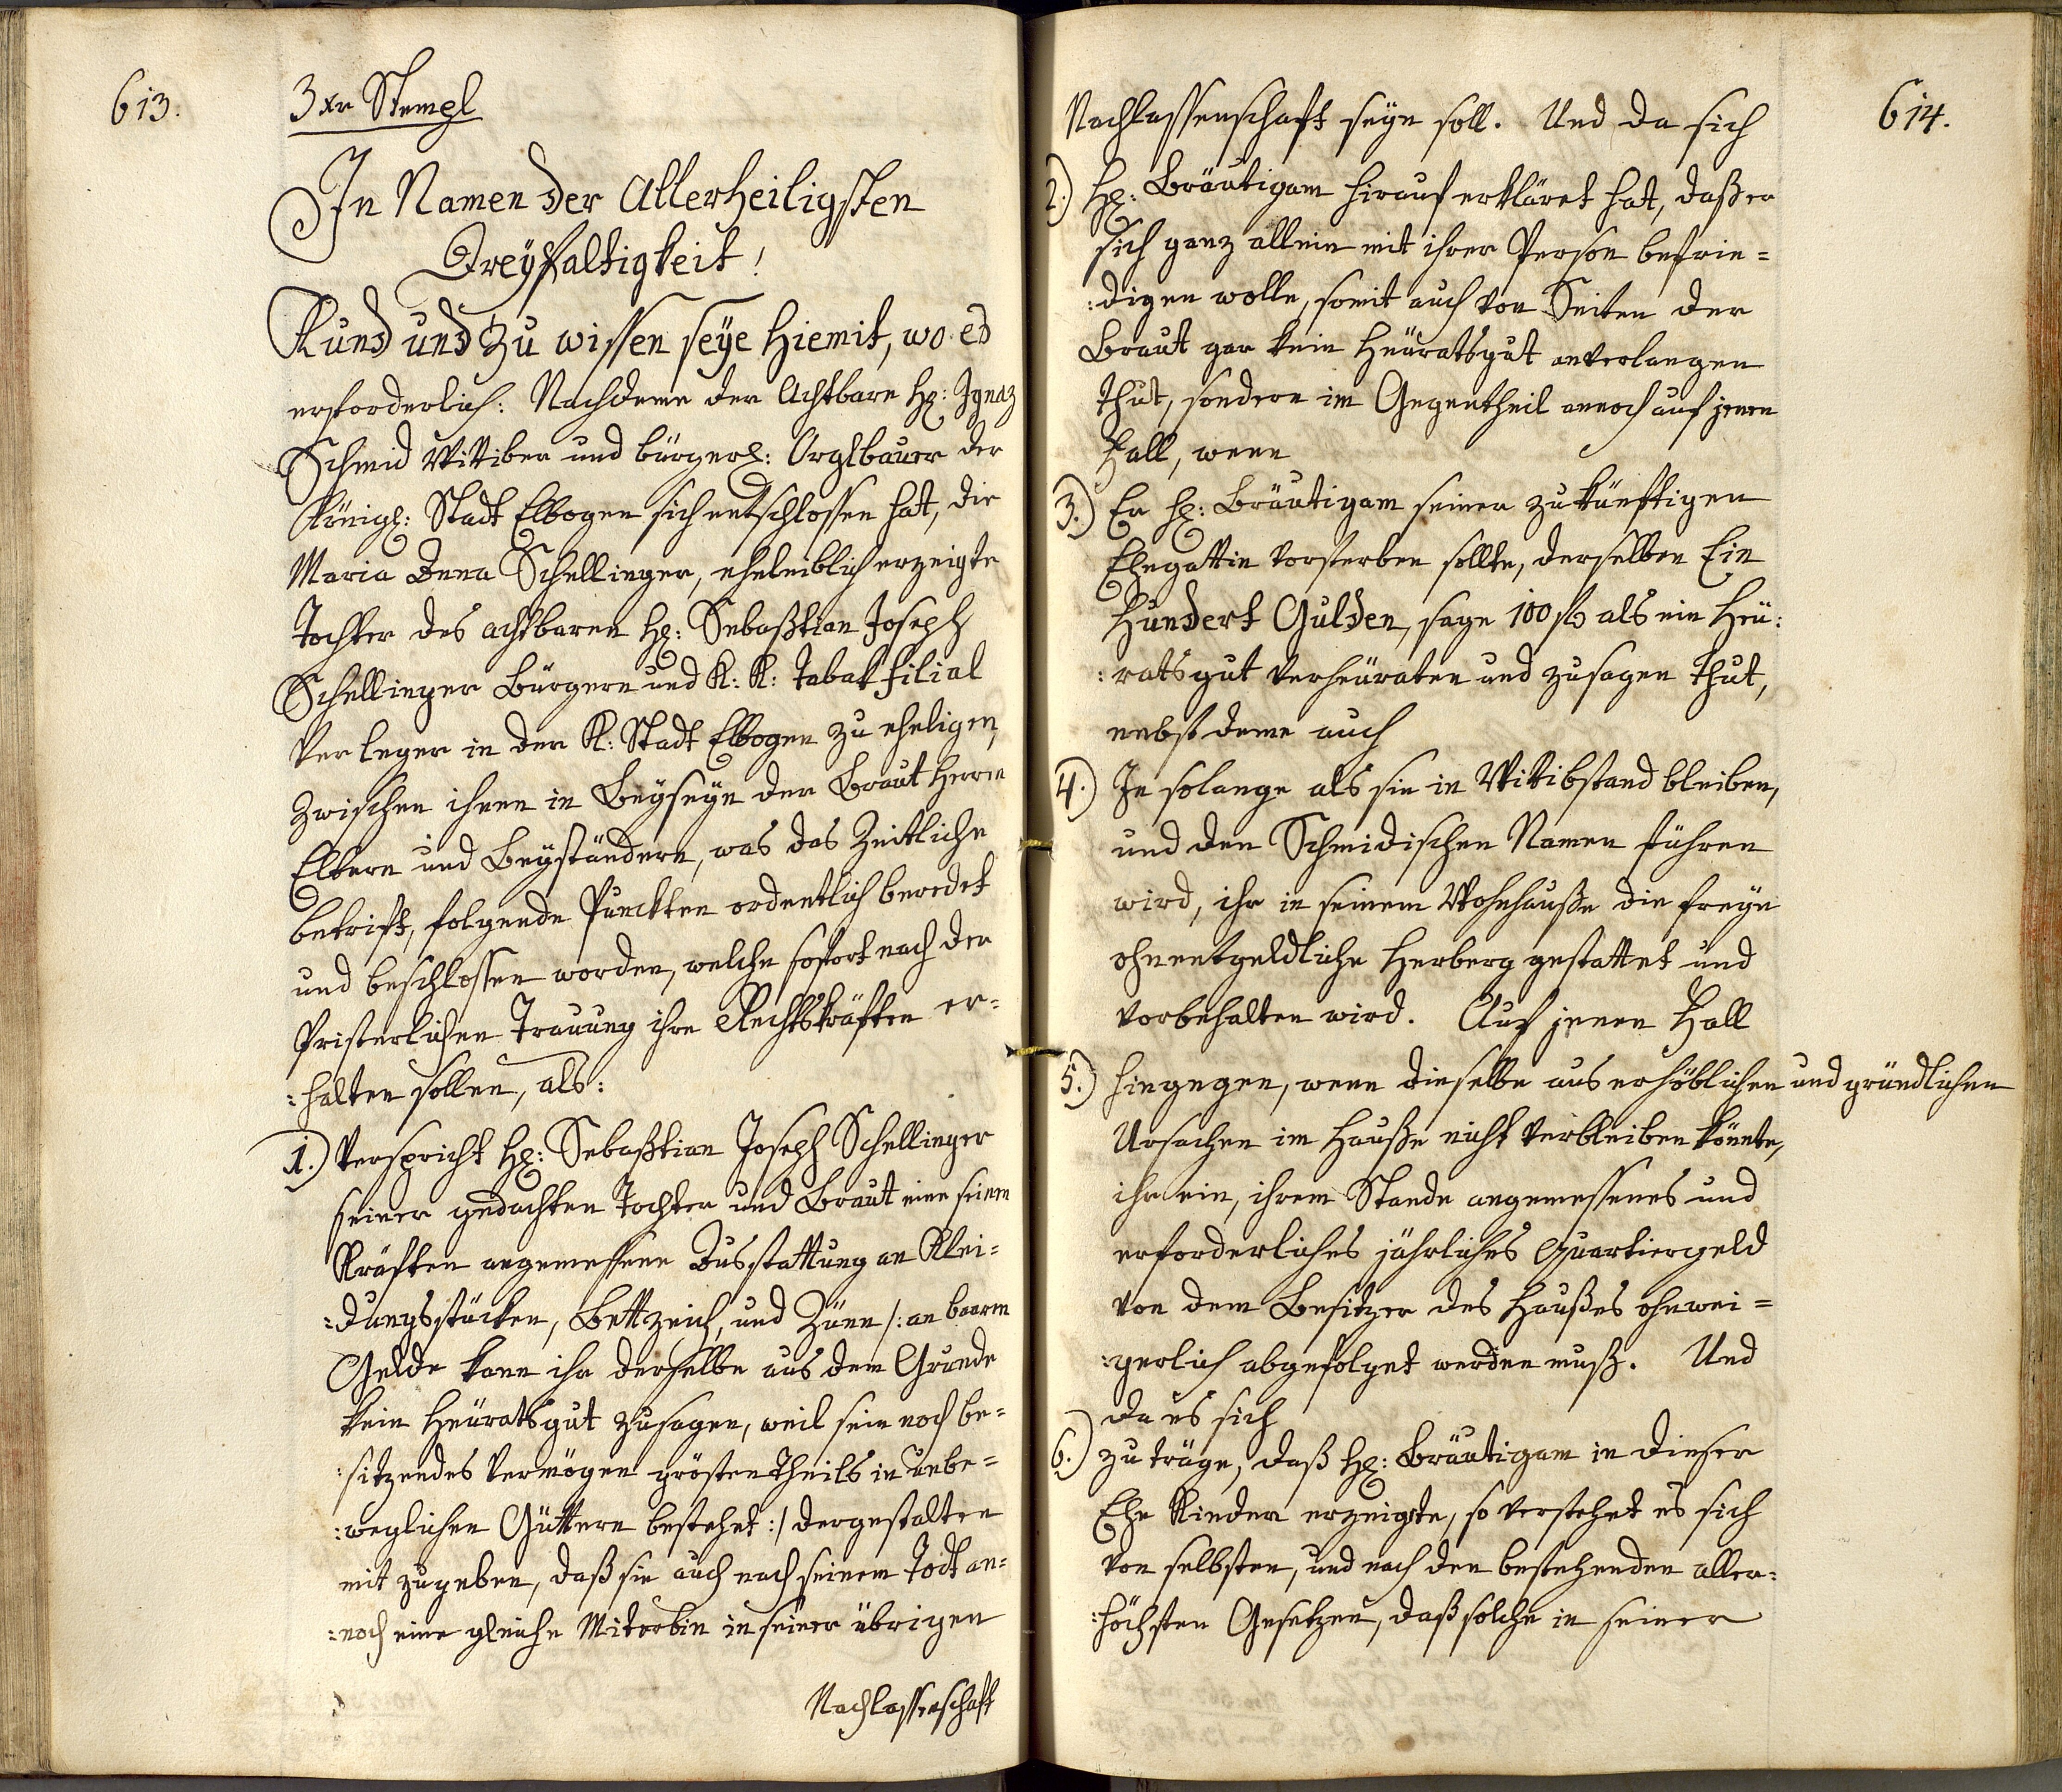 613.
3 xr Stempl
In Namen der Allerheiligsten
Dreyfaltigkeit!
Kund und zu wissen seye hiemit, wo es
erforderlich: Nachdeme der Achtbare H: Ignaz
Schmid Wittiber und bürgerl: Orglbauer der
Königl: Stadt Elbogen sich entschlossen hat, die
Maria Anna Schellinger, eheleiblich erzeigte
Tochter des achtbaren H: Sebasstian Joseph
Schellinger Bürgern und K: K: Tabak filial
Verleger in der K: Stadt Elbogen zu eheligen,
Zwischen ihnen in Beyseyn der Braut Herrn
Eltern und Beyständern, was das Zeitliche
betrift, folgende Puncktten ordentlich beredet
und beschlossen worden, welche sofort nach der
Pristerlichen Trauung ihre Rechtskräften er=
:halten sollen, als:
1.) Verspricht H: Sebasstian Joseph Schellinger
seiner gedachten Tochter und Braut eine seinen
Kräften angemessene Ausstattung an Klei=
:dungsstücken, Bettzeich, und Zünn /: an baaren
Gelde kann ihr derselbe aus dem Grunde
kein Heüratsgut zusagen, weil sein noch be=
:sitzendes Vermögen grösten Theils in unbe=
:weglichen Güttern bestehet :/ dergestalten
mit zugeben, daß sie auch nach seinem Todt an=
:noch eine gleiche Miterbin in seiner übrigen
Nachlassenschaft
614.
Nachlassenschaft seyn soll. Und da sich
2.) H: Bräutigam hirauf erkläret hat, daß er
sich ganz allein mit ihrer Person befrie=
:digen wolle, somit auch von Seiten der
Braut gar kein Heüratsgut anverlangen
thut, sondern im Gegentheil annoch auf jenen
Fall, wenn
3.) Er H: Bräutigam seiner zukünftigen
Ehegattin vorsterben sollte, derselben Ein
Hundert Gulden, sage 100 f als ein Heü:
:ratsgut verheüraten und zusagen thut,
nebst deme auch
4.) In solange als sie in Wittibstand bleiben,
und den Schmidischen Namen führen
wird, ihr in seinem Wohnhauße die freye
ohnentgeldliche Herberg gestattet und
vorbehalten wird. Auf jenen Fall
5.) hingegen, wenn dieselbe aus erhöblichen und gründlichen
Ursachen im Hauße nicht verbleiben könnte,
ihr ein, ihrem Stande angemessenes und
erforderliches jährliches Quartiergeld
von dem Besitzer des Haußes ohnwei=
:gerlich abgefolget werden muß. Und
da es sich
6.) zu träge, daß H: Bräutigam in dieser
Ehe Kinder erzeigte, so verstehet es sich
von selbsten, und nach den bestehenden aller:
:höchsten Gesetzen, daß solche in seiner